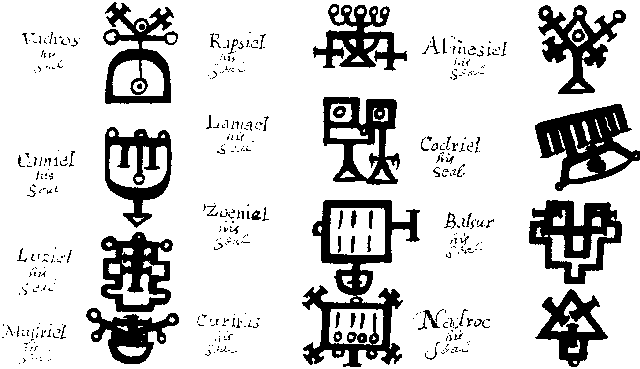 Vadros
his
Seal
Camiel
his
Seal
Luziel
his
Seal
Musiriel
his
Seal
Rapsiel
his
Seal
Lamael
his
Seal
Zoeniel
his
Seal
Curifas
his
Seal
Almesiel
his
Seal
Codriel
his
Seal
Balsur
his
Seal
Nadroc
his
Seal